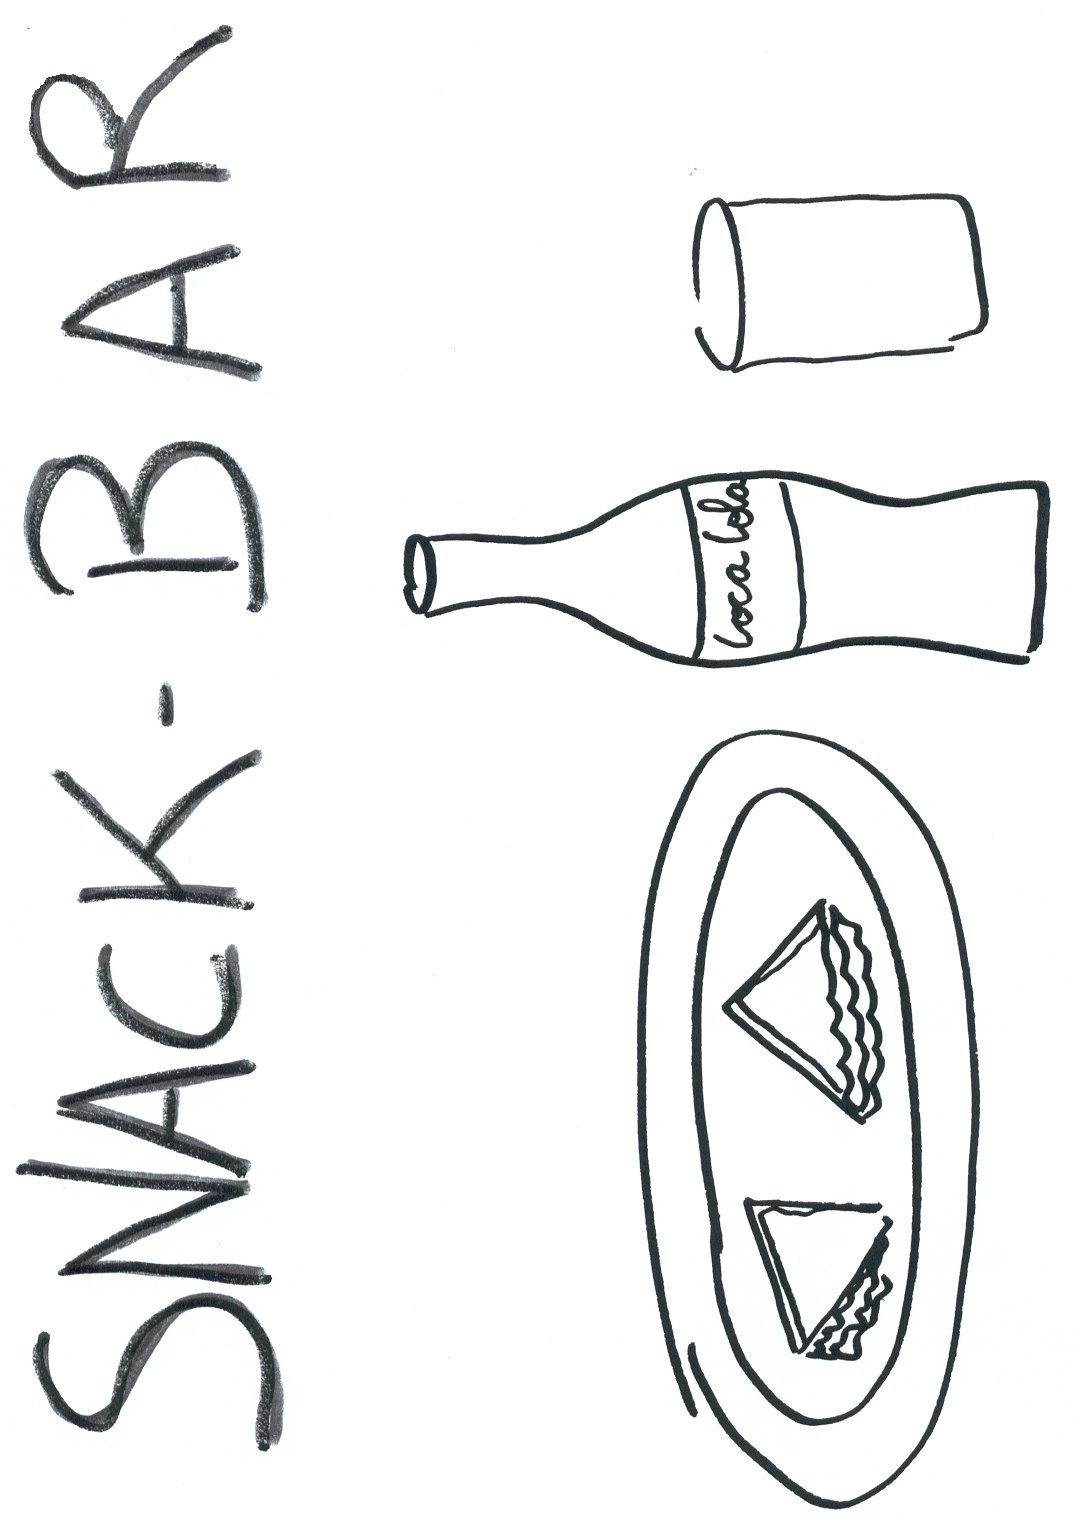 SNACK-BAR
Coca Cola